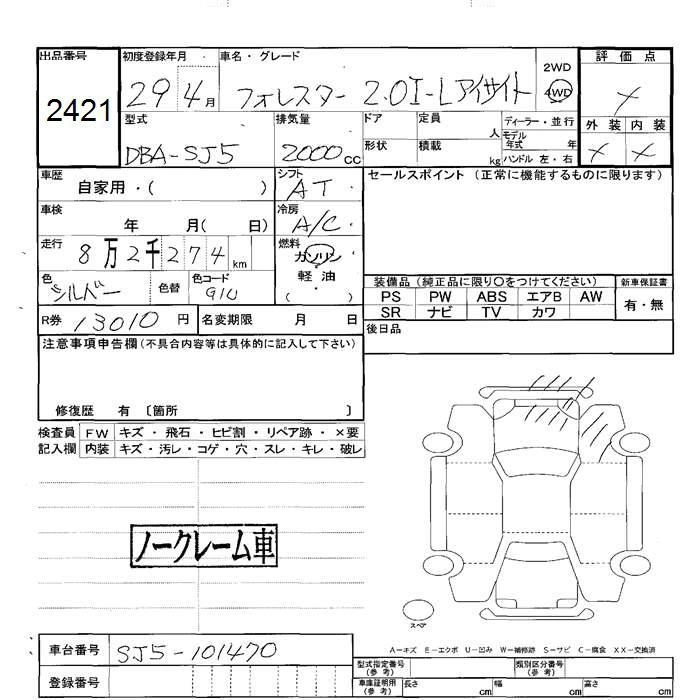 出品番号 初度登録年月 車名・グレード 評価点
2421 29 4月 フォレスター 2.0I-Lアイサイト 2WD 4WD ×
型式 排気量 ドア 定員 人 ディーラー・並行 外装 内装
DBA-SJ5 2000cc 形状 積載 kg モデル年式 年 ハンドル 左・右 × ×
車歴 自家用・( ) シフト AT セールスポイント (正常に機能するものに限ります)
車検 年 月( 日) 冷房 A/C
走行 8万2千274km 燃料 ガソリン
軽油
( )
色 シルバー 色替 色コード G1U
装備品 (純正品に限り〇をつけてください) 新車保証書
PS PW ABS エアB AW 有・無
SR ナビ TV カワ
R券 13010円 名変期限 月 日
後日品
注意事項申告欄(不具合内容等は具体的に記入して下さい)
修復歴 有 〔箇所 〕
検査員 FW キズ・飛石・ヒビ割・リペア跡・×要
記入欄 内装 キズ・汚レ・コゲ・穴・スレ・キレ・破レ
ノークレーム車
スペア
車台番号 SJ5-101470
A-キズ E-エクボ U-凹み W-補修跡 S-サビ C-腐食 XX-交換済
登録番号
型式指定番号(参考) 類別区分番号(参考)
車庫証明用(参考) 長さ cm 幅 cm 高さ cm